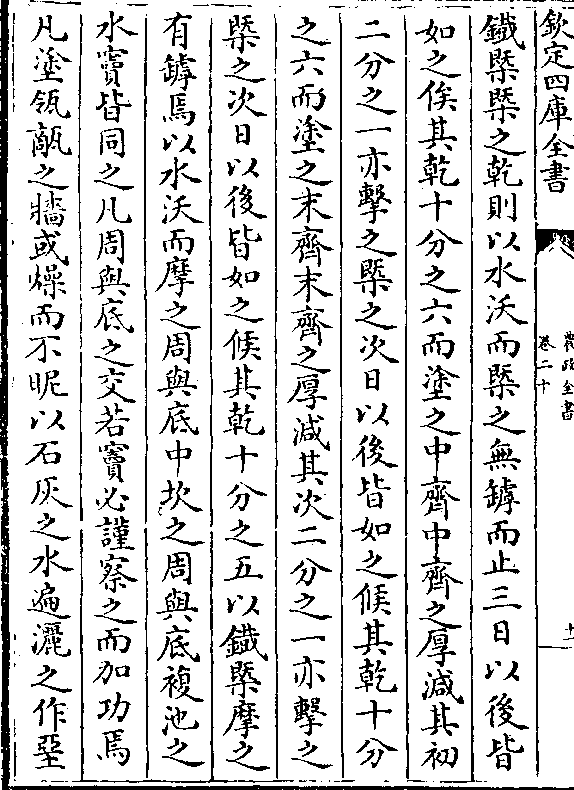 欽定四庫全書
農政全書
卷二十
十
鐵槩槩之乾則以水沃而槩之無罅而止三日以後皆
如之俟其乾十分之六而塗之中齊中齊之厚減其初
二分之一亦擊之槩之次日以後皆如之候其乾十分
之六而塗之末齊末齊之厚減其次二分之一亦擊之
槩之次日以後皆如之候其乾十分之五以鐵槩摩之
有罅焉以水沃而摩之周與底中坎之周與底複池之
水竇皆同之凡周與底之交若竇必謹察之而加功焉
凡塗瓴甋之牆或燥而不昵以石灰之水遍灑之作堊